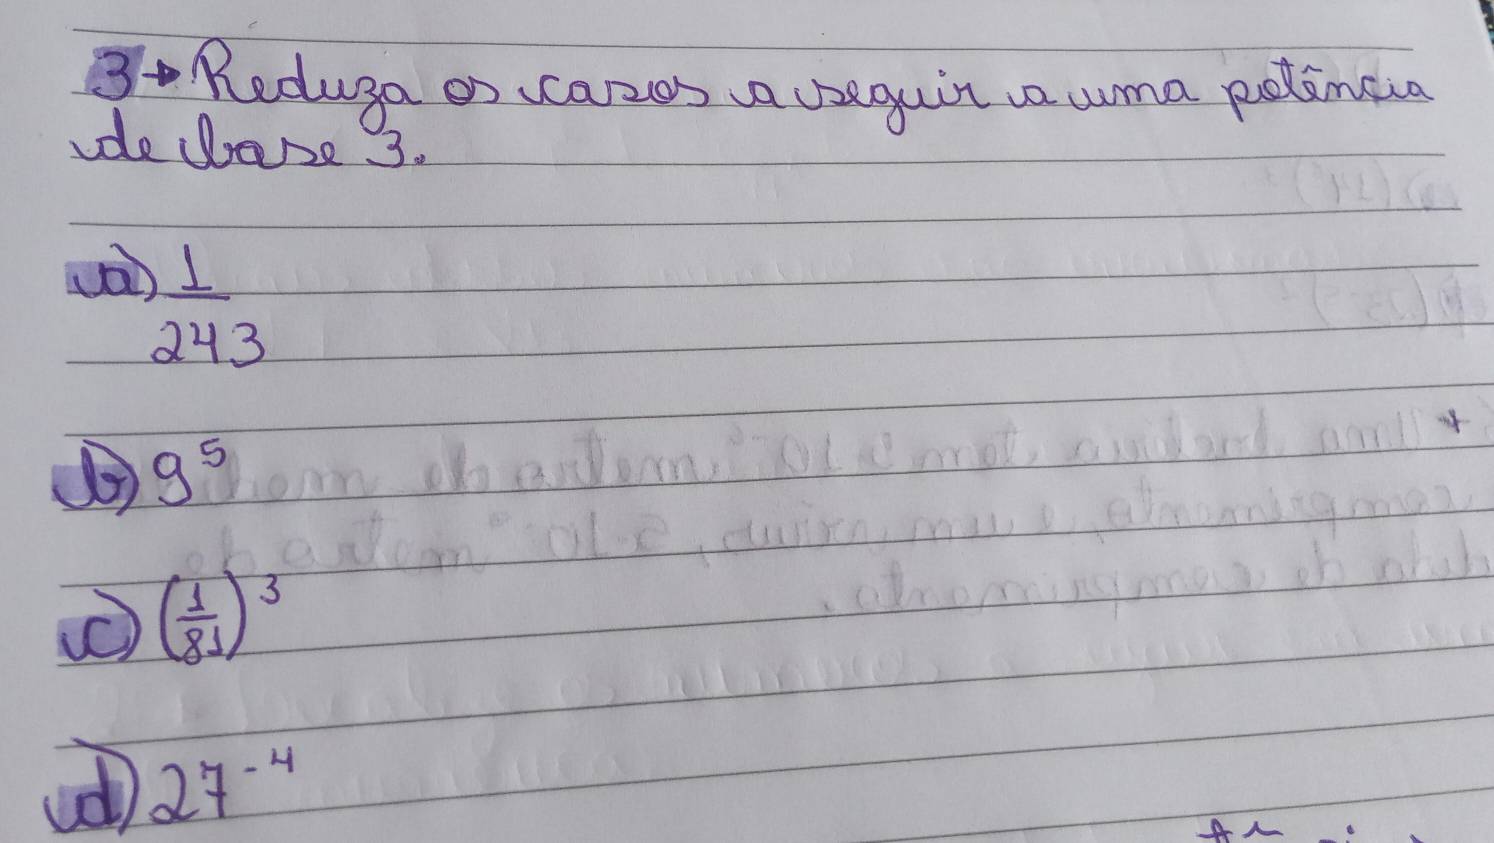 3→ Reduza os casos a seguir a uma potência
de base 3.
a) 1/243
b) 9⁵
c) (1/81)³
d) 27⁻⁴